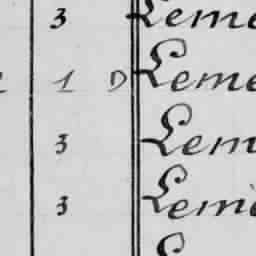 3 Leme
1 D Leme
3 Lem
3 Lemi